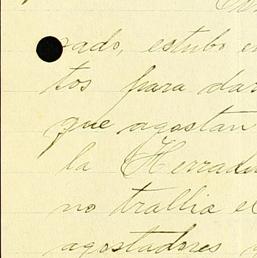 sado, estubo e
tos para dar
que agostan
la Herradu
no trallia e
agostadores